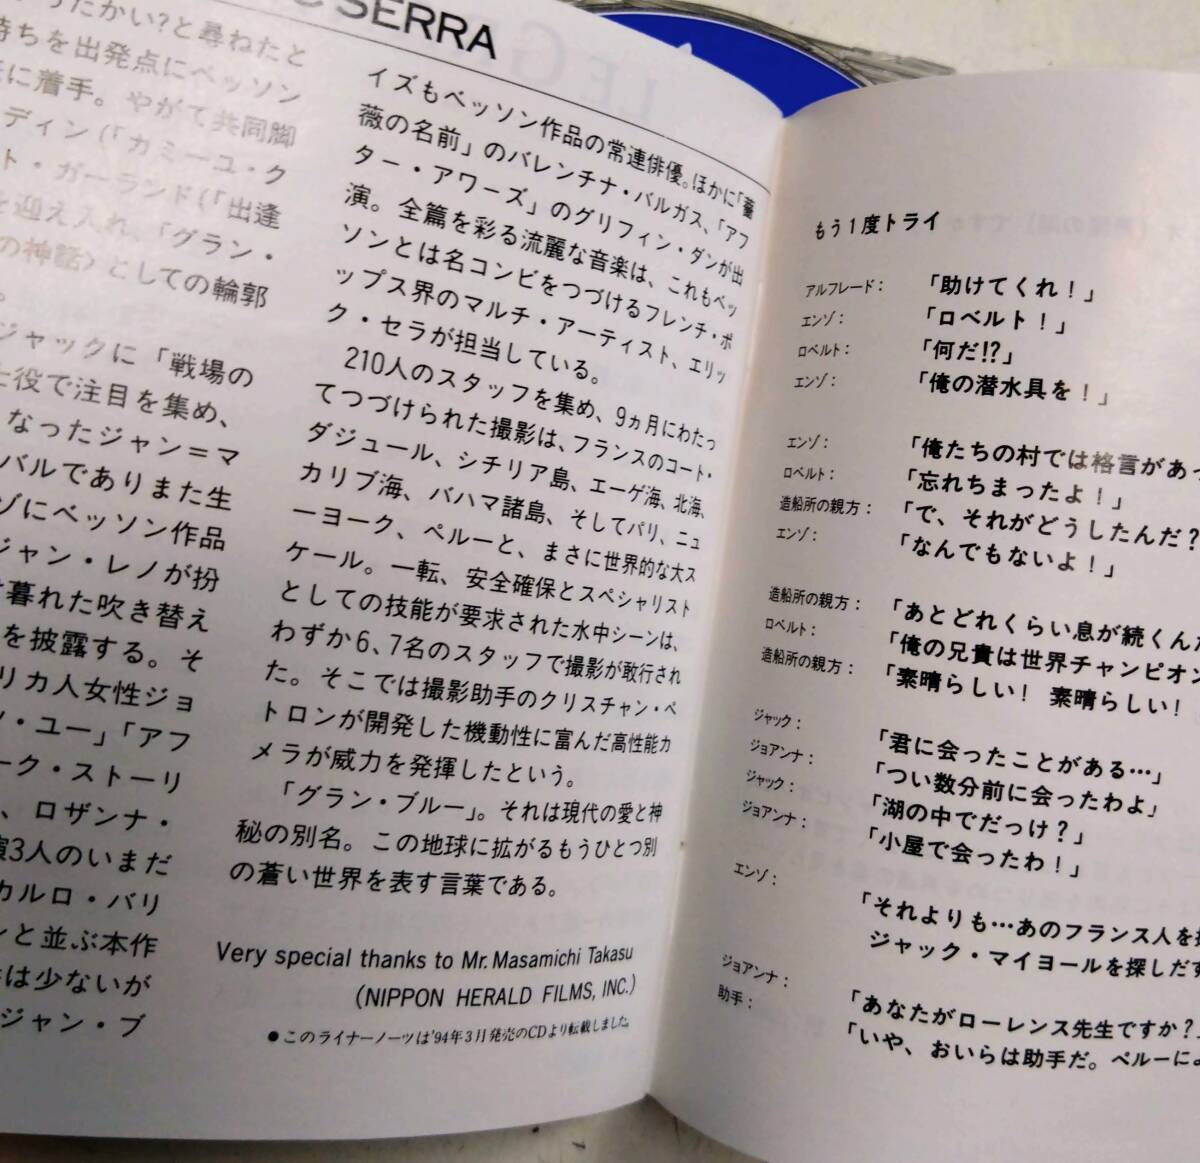 SERRA
ったかい?と尋ねたと
持ちを出発点にベッソン
に着手。やがて共同脚
ディン(「カミーユ・ク
ト・ガーランド(「出逢
を迎え入れ、「グラン・
の神話〉としての輪郭
。
ジャックに「戦場の
士役で注目を集め、
なったジャン＝マ
バルでありまた生
ゾにベッソン作品
ジャン・レノが扮
暮れた吹き替え
を披露する。そ
リカ人女性ジョ
ン・ユー」「アフ
ーク・ストーリ
、ロザンナ・
演3人のいまだ
カルロ・バリ
ンと並ぶ本作
は少ないが
ジャン・ブ
イズもベッソン作品の常連俳優。ほかに「薔
薇の名前」のバレンチナ・バルガス、「アフ
ター・アワーズ」のグリフィン・ダンが出
演。全篇を彩る流麗な音楽は、これもベッ
ソンとは名コンビをつづけるフレンチ・ポ
ップス界のマルチ・アーティスト、エリッ
ク・セラが担当している。
210人のスタッフを集め、9ヵ月にわたっ
てつづけられた撮影は、フランスのコート・
ダジュール、シチリア島、エーゲ海、北海、
カリブ海、バハマ諸島、そしてパリ、ニュ
ーヨーク、ペルーと、まさに世界的な大ス
ケール。一転、安全確保とスペシャリスト
としての技能が要求された水中シーンは、
わずか6、7名のスタッフで撮影が敢行され
た。そこでは撮影助手のクリスチャン・ペ
トロンが開発した機動性に富んだ高性能カ
メラが威力を発揮したという。
「グラン・ブルー」。それは現代の愛と神
秘の別名。この地球に拡がるもうひとつ別
の蒼い世界を表す言葉である。
Very special thanks to Mr. Masamichi Takasu
(NIPPON HERALD FILMS, INC.)
●このライナーノーツは'94年3月発売のCDより転載しました。
もう1度トライ
アルフレード： 「助けてくれ！」
エンゾ： 「ロベルト！」
ロベルト： 「何だ!?」
エンゾ： 「俺の潜水具を！」
エンゾ： 「俺たちの村では格言があっ
ロベルト： 「忘れちまったよ！」
造船所の親方： 「で、それがどうしたんだ？
エンゾ： 「なんでもないよ！」
造船所の親方： 「あとどれくらい息が続くんだ
ロベルト： 「俺の兄貴は世界チャンピオン
造船所の親方： 「素晴らしい！ 素晴らしい！
ジャック： 「君に会ったことがある…」
ジョアンナ： 「つい数分前に会ったわよ」
ジャック： 「湖の中でだっけ？」
ジョアンナ： 「小屋で会ったわ！」
エンゾ： 「それよりも…あのフランス人を
ジャック・マイヨールを探しだす
ジョアンナ： 「あなたがローレンス先生ですか？」
助手： 「いや、おいらは助手だ。ペルーによ